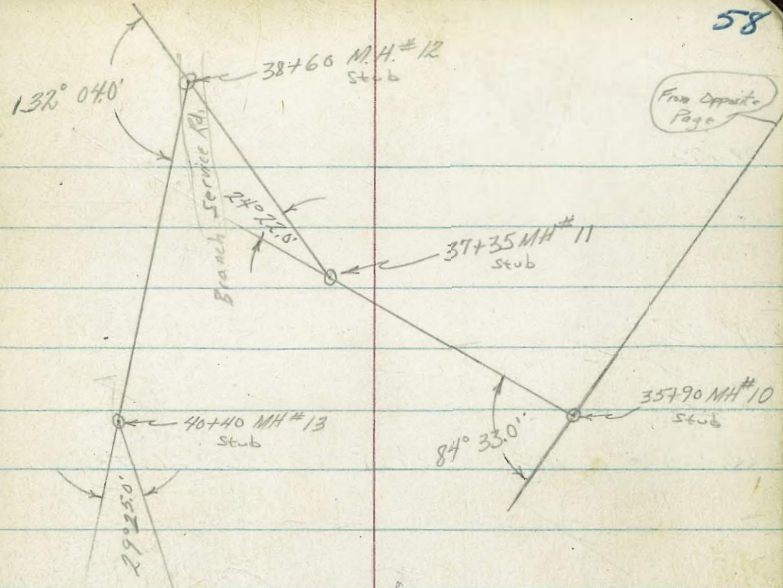 58
132° 04.0'
38+60 M.H. #12
Stub
From Opposite
Page
Branch Service Rd.
24° 22.0'
37+35 MH #11
Stub
35+90 MH #10
Stub
40+40 MH #13
Stub
84° 33.0'
29° 25.0'